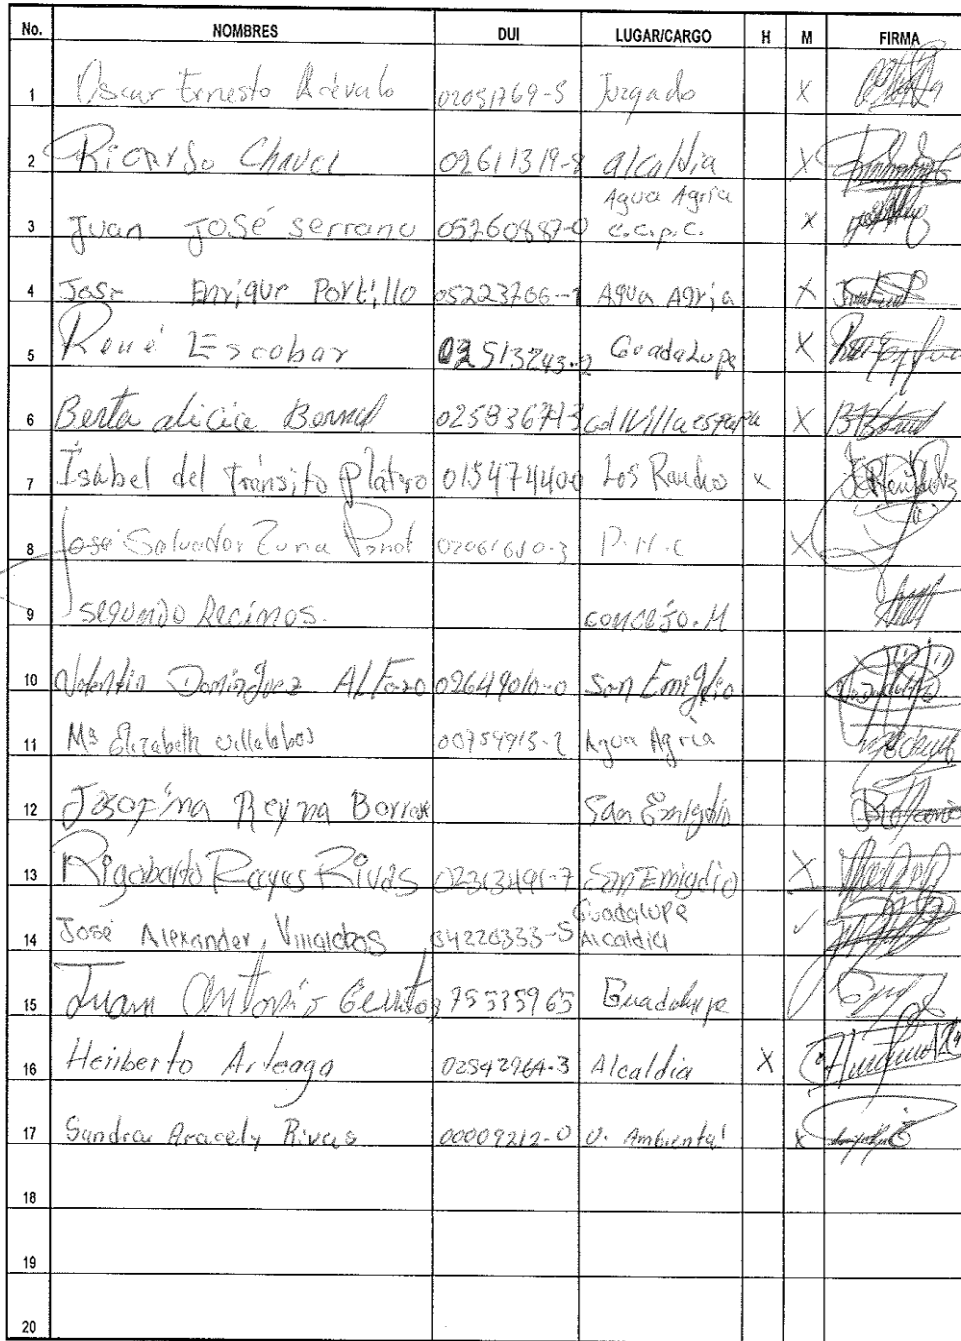 No. NOMBRES DUI LUGAR/CARGO H M FIRMA
1 Oscar Ernesto Arévalo 02051769-5 Juzgado X
2 Ricardo Chavez 02611319-8 alcaldia X
3 Juan José Serrano 05260887-0 Agua Agria c.c.p.c. X
4 Jose Enrique Portillo 05223766-1 Agua Agria X
5 René Escobar 02513243-2 Guadalupe X
6 Berta alicia Bernal col Villa españa X
7 Isabel del Tránsito Platero 015474400 Los x
8 José Salvador Zuna X
9 segundo Recinos. concejo.M
10 Valentin Dominguez ALFaro 02649010-0 San Emigdio
11 Mª Elizabeth villalobos Agua Agria
12 Josofina Reyna San Emigdio
13 Rigoberto Rivas 02313491-7 San Emigdio X
14 José Alexander Villalobos 04220333-5 Guadalupe Alcaldia
15 Juan Antonio 75535965 Guadalupe
16 Heriberto Arteaga 02542964-3 Alcaldia X
17 Sandra Aracely Rivas 00009212-0 U. Ambiental x
18
19
20